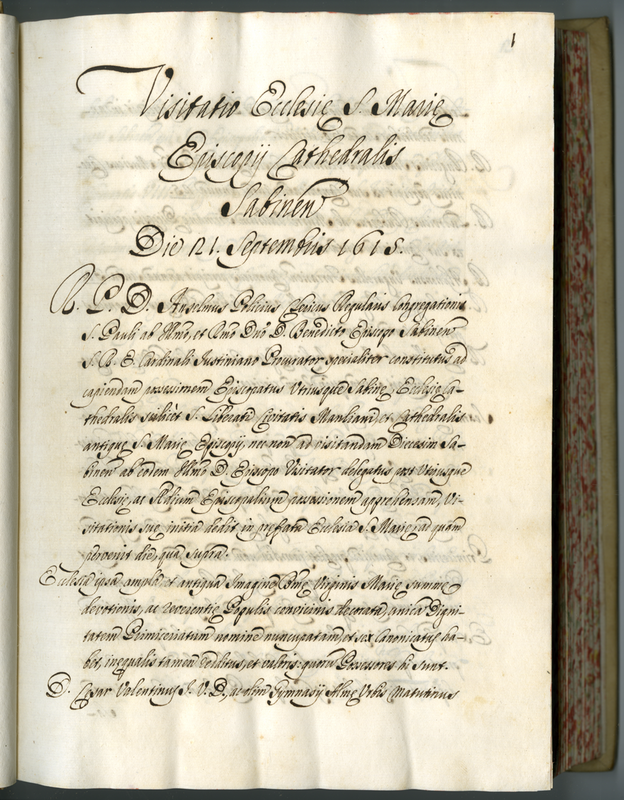 1
Visitatio Ecclesię S. Marię
Episcopij Cathedralis
Sabinen
Die 21. Septembris 1615.
R. P. D. Anselmus Clericus Regularis Congregationis
S. Pauli ab Illmo, et Rmo Dno D. Benedicto Episcopo Sabinen
S. R. E. Cardinali Iustiniano Procurator specialiter constitutus ad
capiendam possessionem Episcopatus Utriusque Sabinę, Ecclesię Ca-
thedralis scilicet S. Liberati Civitatis Manliane, et Cathedralis
antiquę S. Marię Episcopij, nec non ad visitandam Diecesim Sa-
binen ab eodem Illmo D. Episcopo Visitator delegatus post Utriusque
Ecclesię, ac Ędium Episcopalium possessionem apprehensam, Vi-
sitationis suę initia dedit in prefata Ecclesia S. Marię, ad quam
pervenit die, qua supra.
Ecclesia ipsa ampla, et antiqua Imagine Bmę Virginis Marię summę
devotionis, ac reverentię Populis convicinis decorata, unica Digni-
tatem Primiceriatum nomine nuncupatam, et sex Canonicatus ha-
bet, inęqualis tamen redditus, et valoris: quorum Possessores hi sunt.
D. Cesar Valentinus I. V. D., ac olim Gymnasij Almę Urbis matutinus